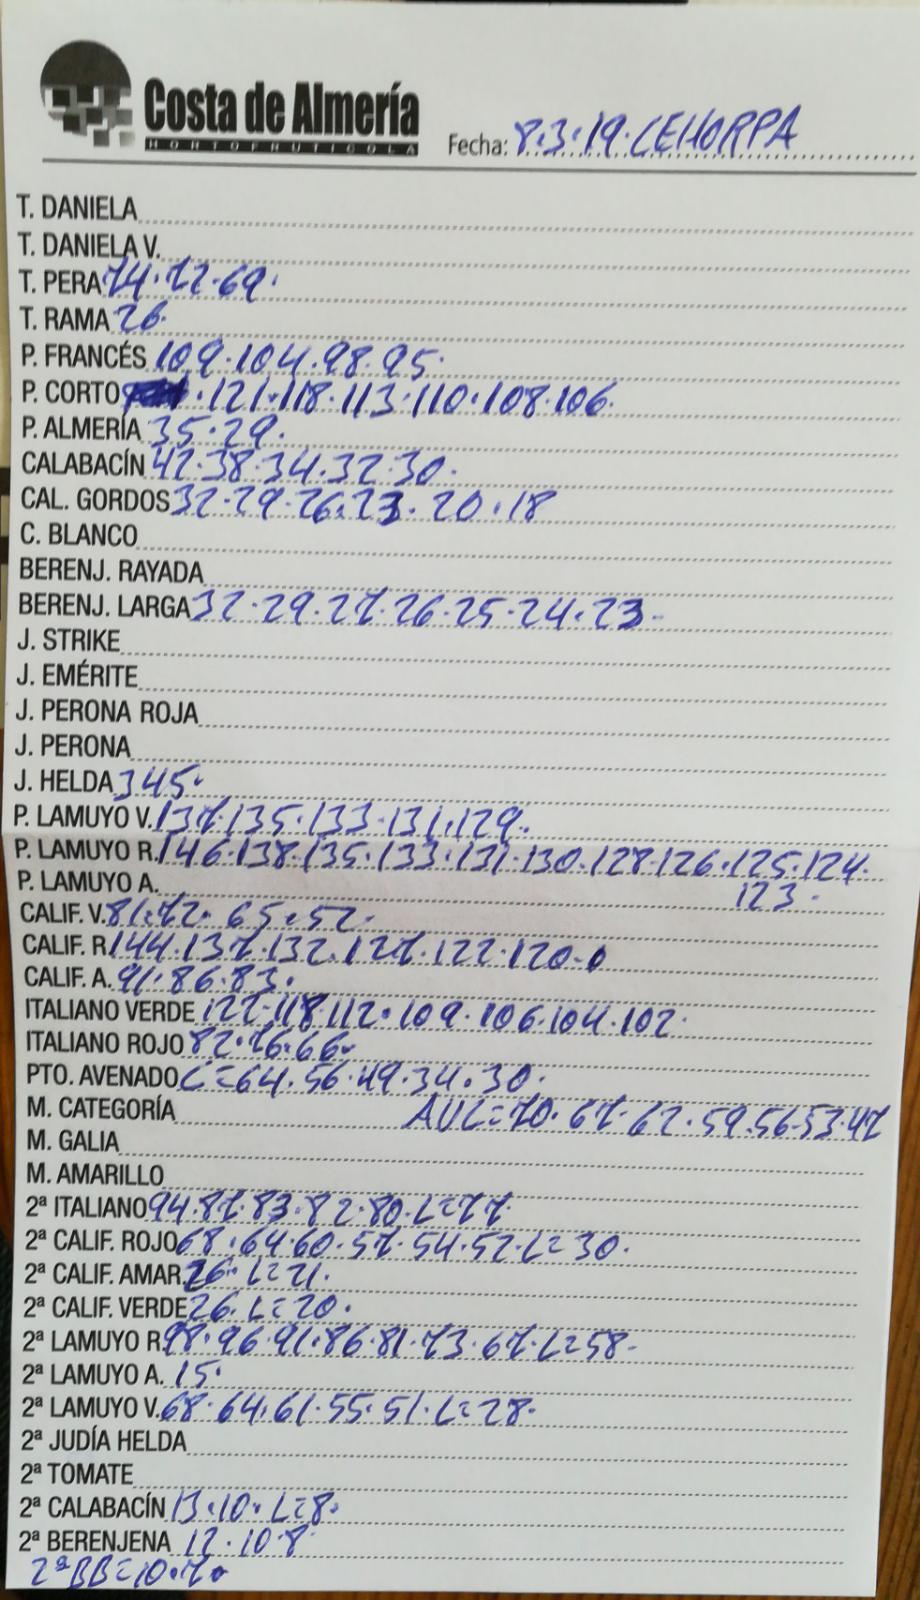 Costa de Almería
HORTOFRUTICOLA
Fecha: 8.3.19. CEHORPA
T. DANIELA
T. DANIELA V.
T. PERA 74.72.69.
T. RAMA 26.
P. FRANCÉS 109.104.98.95.
P. CORTO .121.118.113.110.108.106.
P. ALMERÍA 35.29.
CALABACÍN 42.38.34.32.30.
CAL. GORDOS 32.29.26.23.20.18
C. BLANCO
BERENJ. RAYADA
BERENJ. LARGA 32.29.27.26.25.24.23.
J. STRIKE
J. EMÉRITE
J. PERONA ROJA
J. PERONA
J. HELDA 345.
P. LAMUYO V. 137.135.133.131.129.
P. LAMUYO R. 146.138.135.133.131.130.128.126.125.124.
P. LAMUYO A. 123.
CALIF. V. 81.72.65.52.
CALIF. R 144.137.132.127.122.120.
CALIF. A. 91.86.83.
ITALIANO VERDE 122.118.112.109.106.104.102.
ITALIANO ROJO 82.76.66.
PTO. AVENADO C=64.56.49.34.30.
M. CATEGORÍA AUL=70.67.62.59.56.53.47
M. GALIA
M. AMARILLO
2ª ITALIANO 94.87.83.82.80.L=77.
2ª CALIF. ROJO 68.64.60.57.54.52.L=30.
2ª CALIF. AMAR. 26.L=21.
2ª CALIF. VERDE 26.L=20.
2ª LAMUYO R. 98.96.91.86.81.73.67.L=58.
2ª LAMUYO A. 15.
2ª LAMUYO V. 68.64.61.55.51.L=28.
2ª JUDÍA HELDA
2ª TOMATE
2ª CALABACÍN 13.10.L=8.
2ª BERENJENA 12.10.8
2ª BB=10.7.